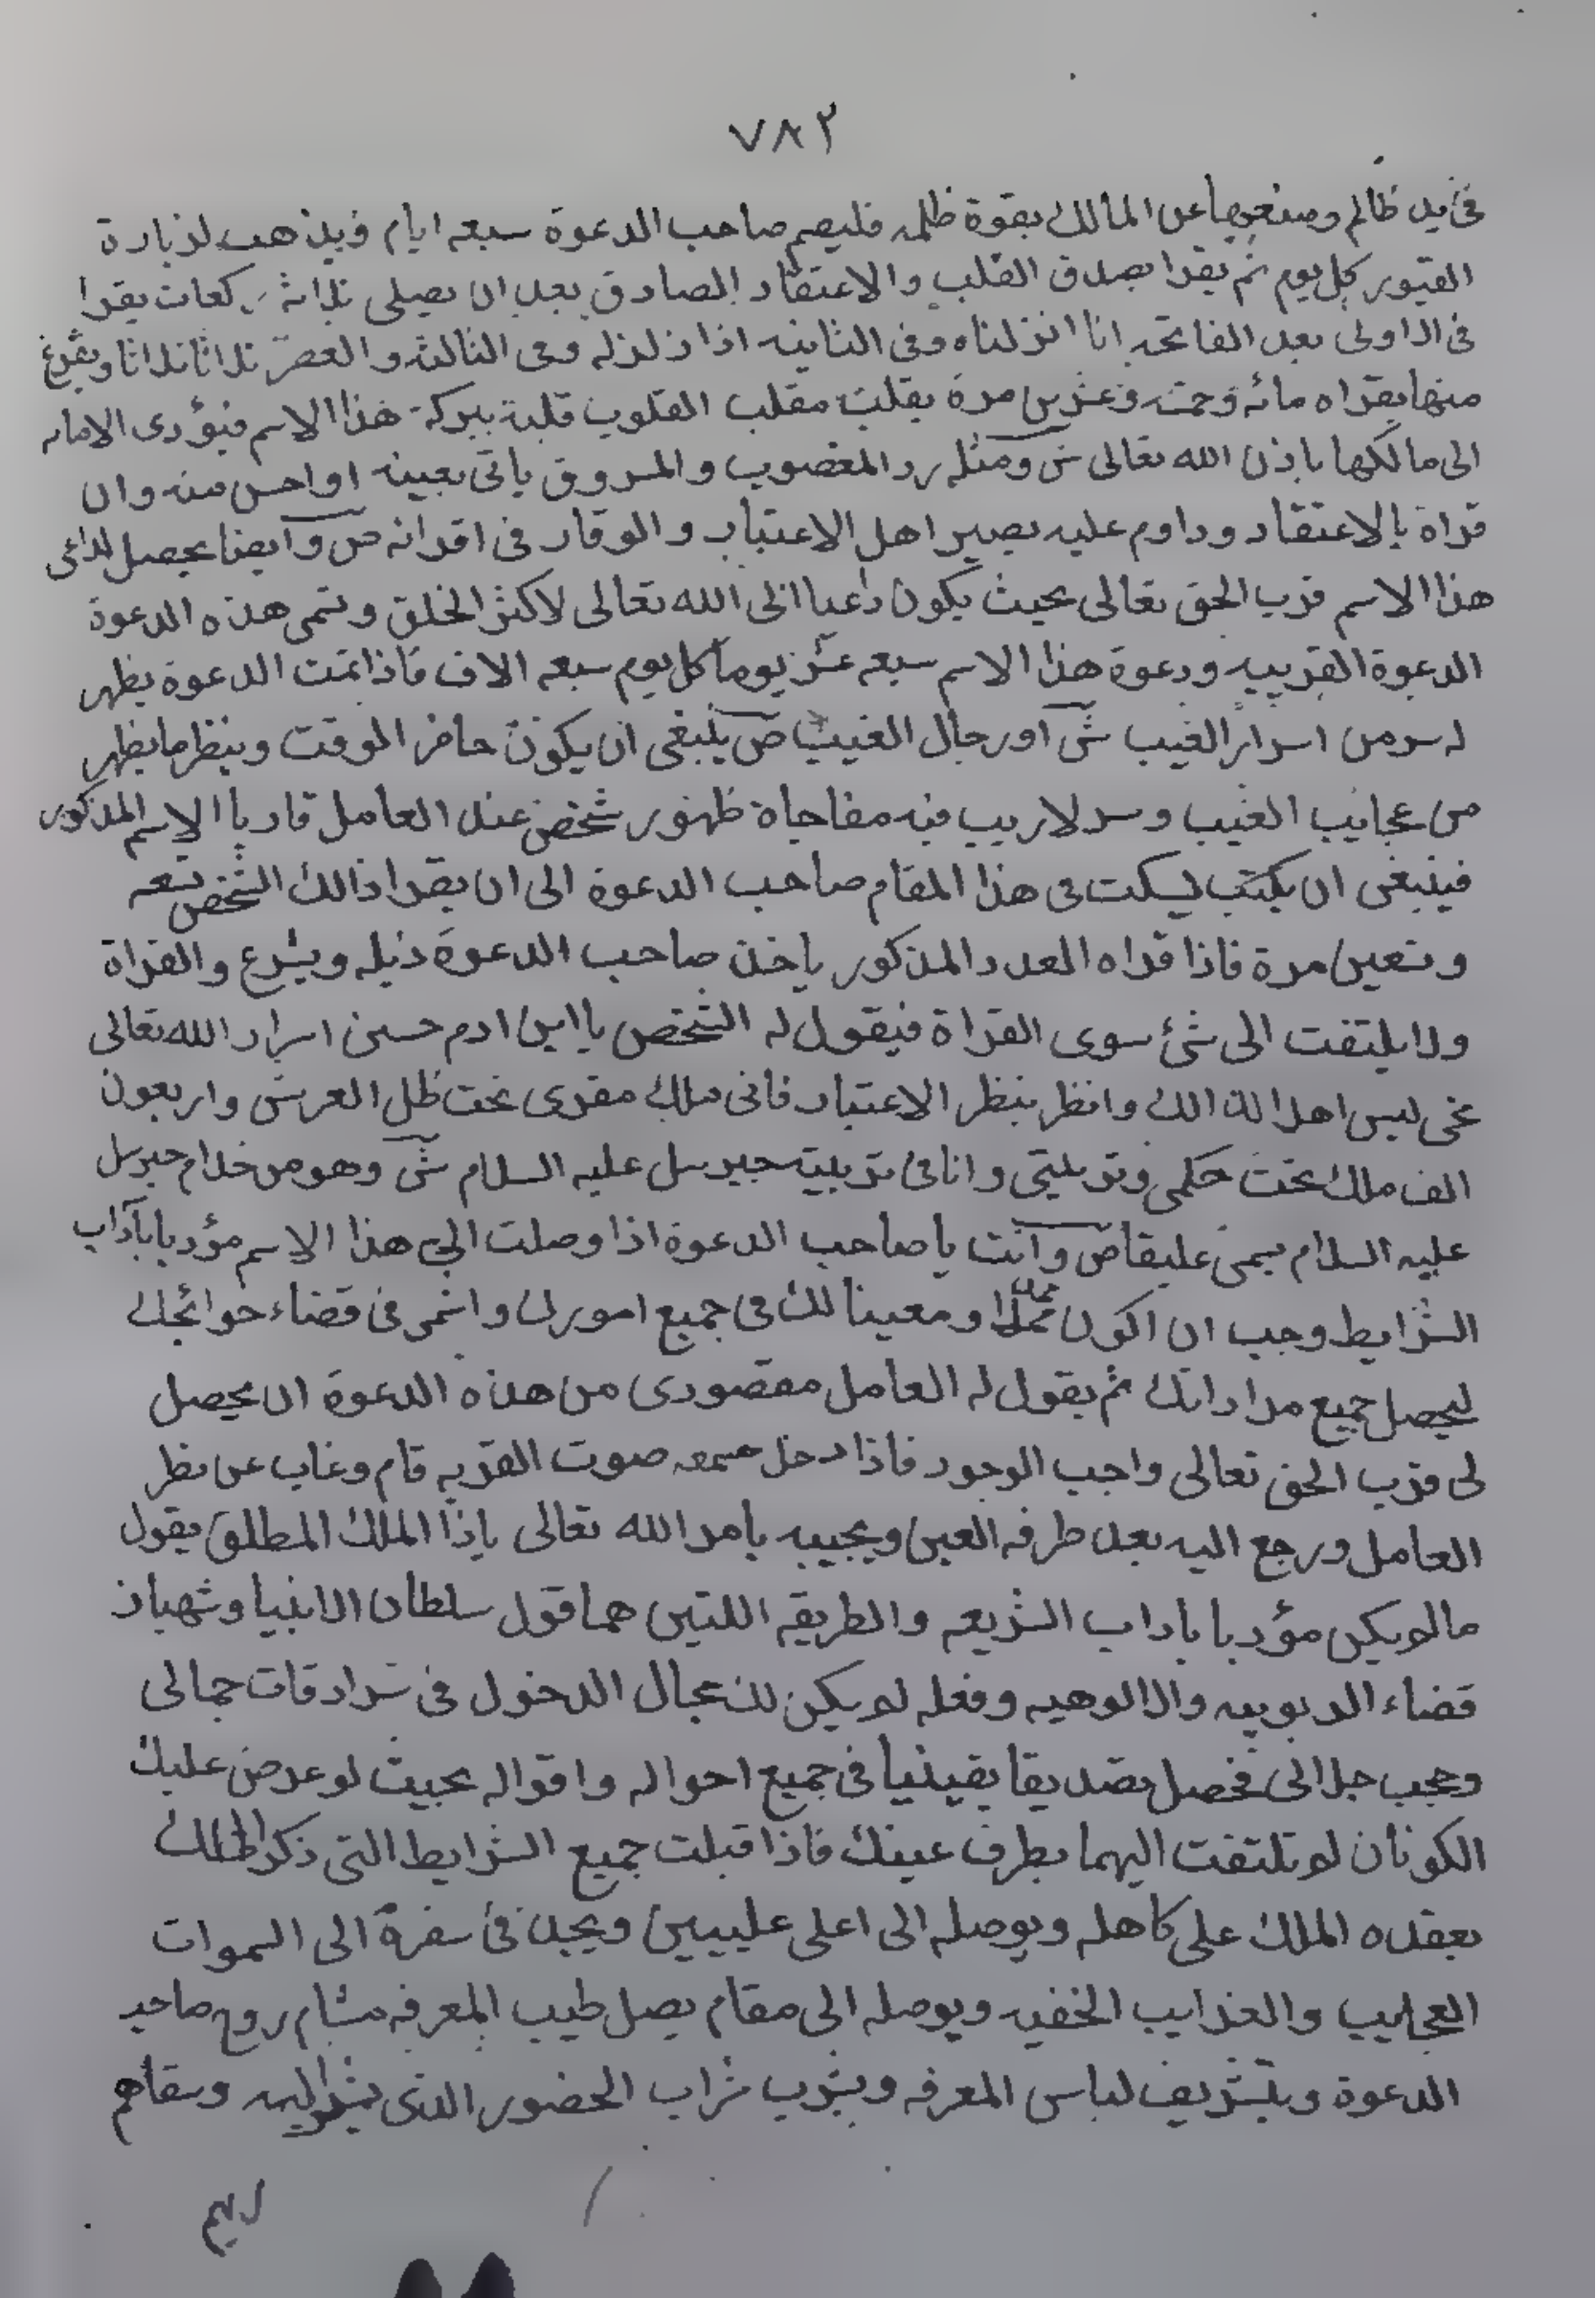 ٧٨٢
فى يد ظالم ومنعها عن المالك بقوة ظلمه فليصم صاحب الدعوة سبعه ايام ويذهب لزيارة
القبور كل يوم ثم يقرا بصدق القلب والاعتقاد الصادق بعد ان يصلى ثلاثة ركعات يقرا
فى الاولى بعد الفاتحه انا انزلناه وفى الثانيه اذا زلزله وفى الثالثه والعصر ثلاثا ثلاثا ويفرغ
منها يقراه مائه وخمسه وعشرين مرة يقلب مقلب القلوب قلبه ببركة هذا الاسم فيؤدى الامانه
الى مالكها باذن الله تعالى ش ومثله رد المغصوب والمسروق ياتى بعينه او احسن منه وان
قراة بالاعتقاد وداوم عليه يصير اهل الاعتبار والوقار فى اقرانه ص وايضا يحصل لداعى
هذا الاسم قرب الحق تعالى بحيث يكون داعيا الى الله تعالى لاكثر الخلق وتسمى هذه الدعوة
الدعوة القريبيه ودعوة هذا الاسم سبعه عشر يوما كل يوم سبعه الاف فاذا تمت الدعوة يظهر
له سر من اسرار الغيب ش او رجال الغيب ص ينبغى ان يكون حاضر الوقت وينظر ما يظهر
من عجايب الغيب وسر لاريب فيه مفاجاة ظهور شخص عند العامل قاريا الاسم المذكور
فينبغى ان يكتب ليسكت فى هذا المقام صاحب الدعوة الى ان يقرا ذالك الشخص تسعه
وتسعين مرة فاذا قراه العدد المذكور ياخذ صاحب الدعوة ذيله ويشرع والقراة
ولا يلتفت الى شئ سوى القراة فيقول له الشخص يا ابن ادم حسن اسرار الله تعالى
عنى ليس اهلا لذالك وانظر بنظر الاعتبار فانى ملك مقرى تحت ظل العرش واربعون
الف ملك تحت حكمى وتربيتى وانا فى تربيته جبرسل عليه السلام ش وهو من خدام جبرسل
عليه السلام يسمى عليقا ص وانت يا صاحب الدعوة اذا وصلت الى هذا الاسم مؤديا باداب
الشرايط وجب ان اكون ممدا ومعينا لك فى جميع امورك واسمى فى قضاء حوائجك
ليحصل جميع مراداتك ثم يقول له العامل مقصودى من هذه الدعوة ان يحصل
لى قرب الحق تعالى واجب الوجود فاذا دخل سمعه صوت القربه قام وغاب عن نظر
العامل ورجع اليه بعد طرفه العين ويجيبه بامر الله تعالى ياذا الملك المطلق يقول
مالم يكن مؤدبا باداب الشريعه والطريقه اللتين هما قول سلطان الانبيا وشهباز
قضاء الربوبيه والالوهيه وفعله لم يكن لك مجال الدخول فى سرادقات جمالى
وحجب جلالى فحصل تصديقا يقينيا فى جميع احواله واقواله بحيث لو عرض عليك
الكونان لم تلتفت اليهما بطرف عينك فاذا قبلت جميع الشرايط التى ذكر الملك
يعقده الملك على كاهله ويوصله الى اعلى عليين ويجد فى سفرة الى السموات
العجايب والغرايب الخفيه ويوصله الى مقام يصل طيب المعرفه مشام روح صاحب
الدعوة وبتشريف لباس المعرفه ويشرب شراب الحضور الذى يشير اليه وسقاهم
ربهم